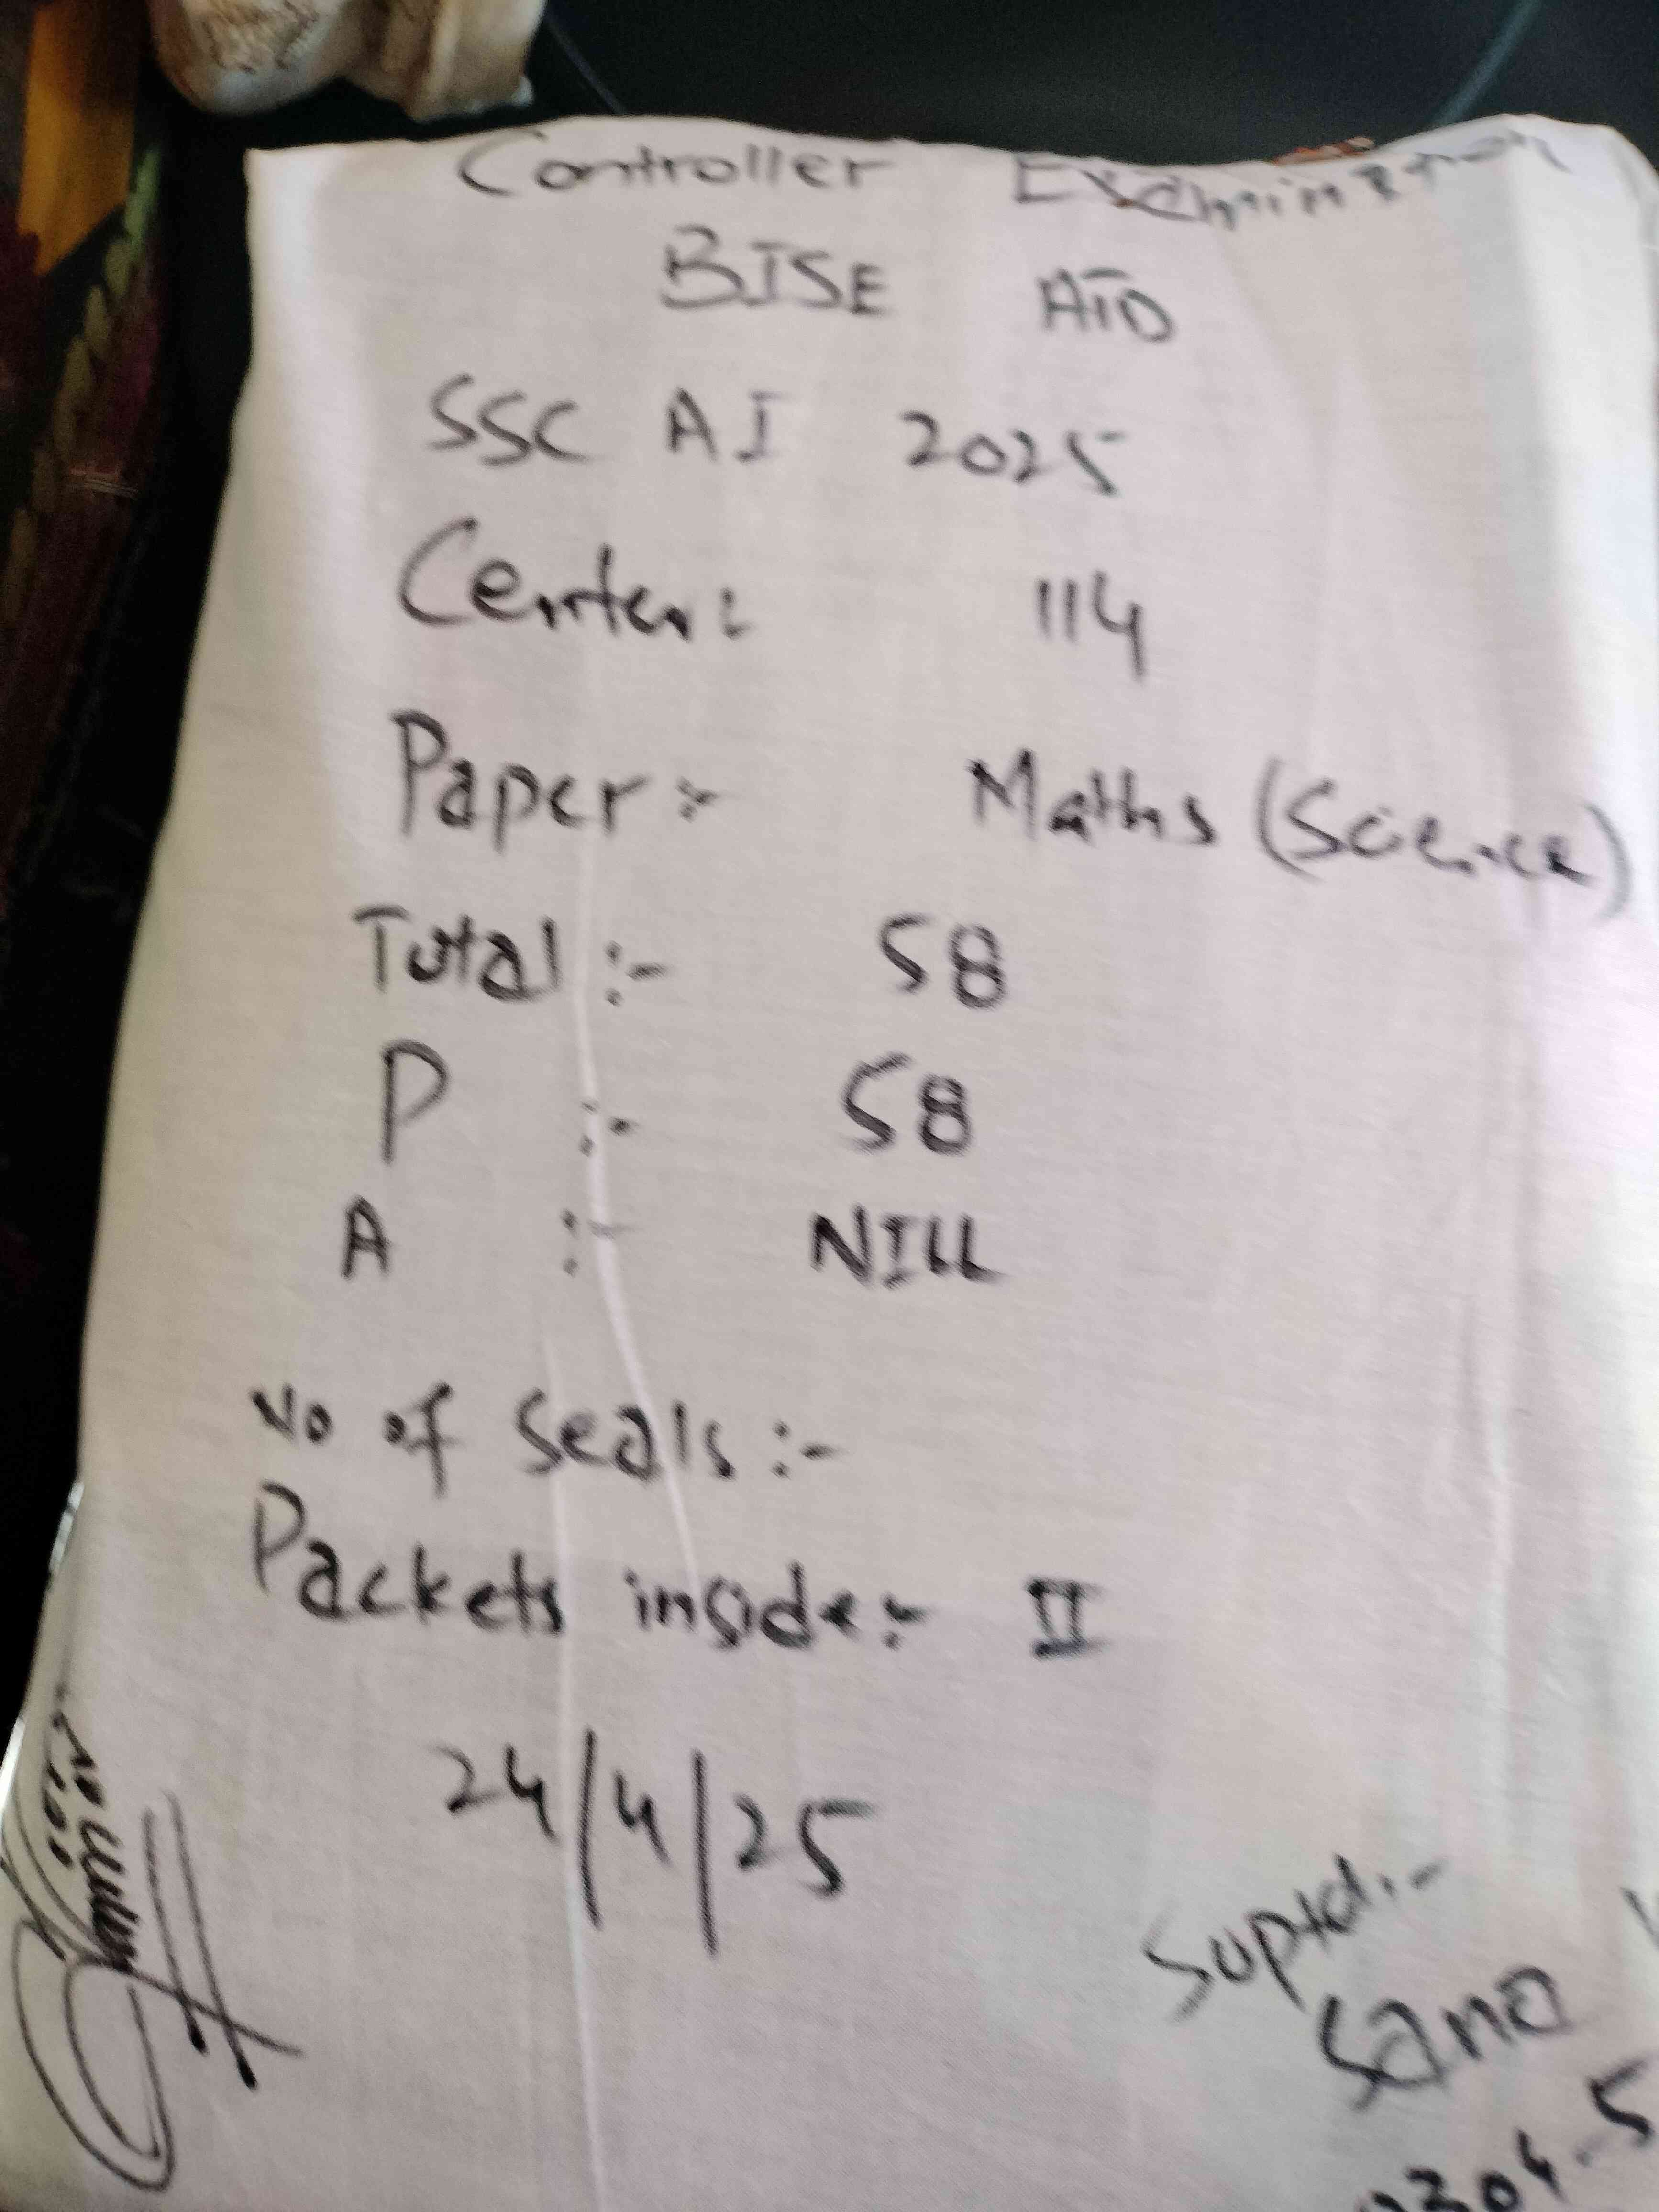 Controller Examination
BISE ATD
SSC AI 2025
Center:
114
Paper :-
Maths (Science)
Total :- 58
P :- 58
A :- NILL
No of Seals :-
Packets inside :- II
24/4/25
Suptd:-
Sana
0304-5